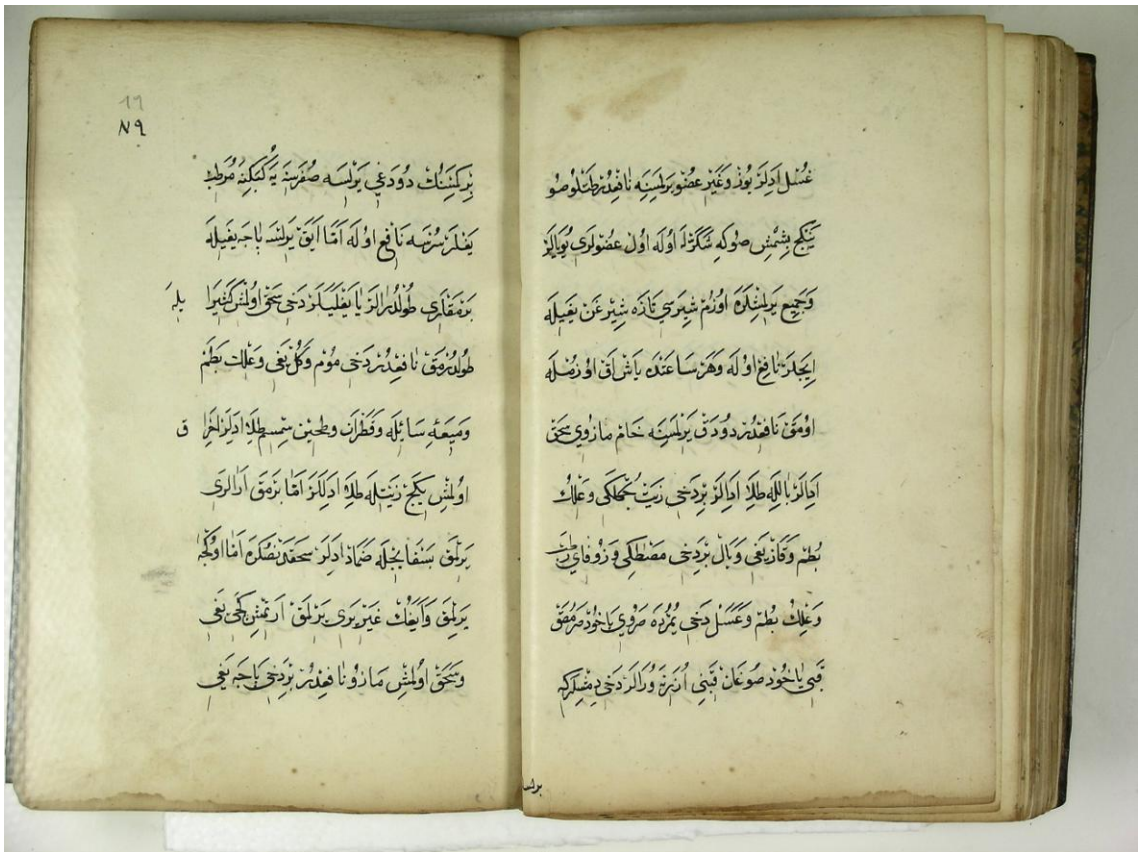 غُسْل اَدِلَرْ يُوزْ وَغَيْر عضْو يَرِلْسَنِه نَافِعْدُرْ طَتْلُو صُو
يَنْكَجْ بِشْمِشْ صُوكِه شَكَرْلَه اُولَه اُولْ عضُولَرِى يُويَالَرْ
وَجَمِيعِ يَرِلْمِشْلَرَه اوُزُمْ شِيرَسِي تَازَه شِيرْ غَنْ يَغِيلَه
اِيجَلَرْ نَافِعْ اوُلَه وَهَرْ سَاعَتْدَه يَاشْ اَقْ اوُزُمْلَه
اوُمَقْ نَافِعْدُرْ دُودَقْ يَرِلْسَنِه خَامْ مازوُيى سَحَقْ
اَدِلَرْ بَالِلَه طِلَا اَدِلَرْ بِرْدَخِى زَيْتْ وَعَلِكْ
بُطْم وَقَازْ يَغِى وَبَالْ بِرْدَخِى مَصْطَكِى وَزُوفَاىِ رَطْبْ
وَعَلِكْ بُطْم وَعَسَلْ دَخِى يُمُرْدَه يَاخُودْ صَرْمُصَقْ
قَبِى يَاخُودْ صُوغَانْ قَبِنِى اُزَرِنَه وُرَالَرْ دَخِى دِمِشْلَرْكِه
برلسا
٨٩
بِرْكِمْسَنِنُكْ دُودَغِى يَرِلْسَه صُفْرَسِنَه يَه كُبَكِنَه مُرَطِبْ
يَغْلَرْ سُرْسَه نَافِعْ اوُلَه اَمَّا اَيَقْ يَرِلْسَه بَاجَه يَغِيلَه
بَرْمَقْلَرِى طُولْدُرَالَرْ يَا يَغْلَيَلَرْ دَخِى سَحَقْ اوُلْمِشْ كَثِيرَا يله
طُولْدُرْمَقْ نَافِعْدُرْ دَخِى مُومْ وَكُلْ يَغِى وَعَلِكْ بَطْم
وَمَيْعَهِ سَائِلَه وَقَطْرَانْ وطَحِينِ سِمْسِمْ طِلَا اَدِلَرْ اخرا ق
اوُلْمِشْ يَنْكَجْ زَيْتِلَه طِلَا اَدِلَلَرْ اَمَّا بَرْمَقْ اَرَالَرِى
يَرِلْمَقْ بَسْفَايِجْلَه ضَمَادْ اَدِلَرْ سَحَقْدَنْصُكْرَه اَمَّا اوُكْجَه
يَرِلْمَقْ وَاَيَغُكْ غَيْرِ يَرِى يَرِلْمَقْ اَرِتْمِشْ كَجِى يَغِى
وَسَحَقْ اوُلْمِشْ مَازُو نَافِعْدُرْ بِرْدَخِى بَاجَه يَغِى